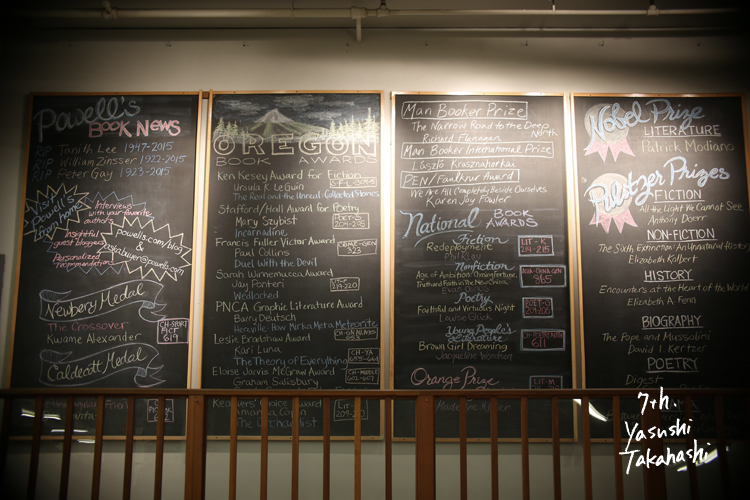 Powell's
BOOK NEWS
RIP Tanith Lee 1947-2015
RIP William Zinsser 1922-2015
RIP Peter Gay 1923-2015
Visit
Powell's
from home!
Interviews
with your favorite
authors
Insightful
guest bloggers
Personalized
recommendations
powells.com/blog
&
Newbery Medal
The Crossover
Kwame Alexander
619
Caldecott Medal
OREGON
BOOK AWARDS
Ken Kesey Award for Fiction
Ursula K. Le Guin
The Real and the Unreal: Collected Stories
Stafford/Hall Award for Poetry
Mary Szybist
Incarnadine
Francis Fuller Victor Award
Paul Collins
323
Duel with the Devil
Sarah Winnemucca Award
Jay Ponteri
Wedlocked
PNCA Graphic Literature Award
Barry Deutsch
Hereville: How Mirka Met a Meteorite
Leslie Bradshaw Award
Kari Luna
CH-YA
The Theory of Everything
Eloise Jarvis McGraw Award
Graham Salisbury
Readers' Choice Award
Amanda Coplin
The Orchardist
Lit
209-210
Man Booker Prize
The Narrow Road to the Deep North
Richard Flanagan
Man Booker International Prize
László Krasznahorkai
PEN/Faulkner Award
We Are All Completely Beside Ourselves
Karen Joy Fowler
National BOOK AWARDS
Fiction
Redeployment
Phil Klay
LIT-K
214-215
Nonfiction
Age of Ambition: Chasing Fortune,
Truth and Faith in the New China
Evan Osnos
865
Poetry
Faithful and Virtuous Night
Louise Glück
Young People's
Literature
Brown Girl Dreaming
Jacqueline Woodson
611
Orange Prize
LIT-M
Madeline Miller
Nobel Prize
LITERATURE
Patrick Modiano
Pulitzer Prizes
FICTION
All the Light We Cannot See
Anthony Doerr
NON-FICTION
The Sixth Extinction: An Unnatural History
Elizabeth Kolbert
HISTORY
Encounters at the Heart of the World
Elizabeth A. Fenn
BIOGRAPHY
The Pope and Mussolini
David I. Kertzer
POETRY
Digest
7th.
Yasushi
Takahashi